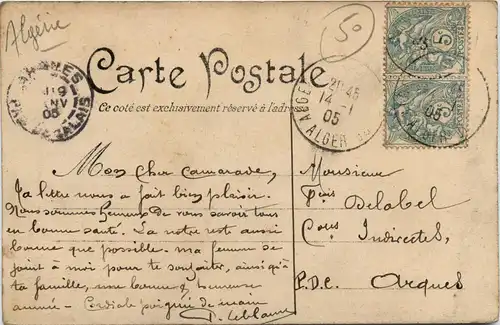 Algérie
50
Carte Postale
Ce côté est exclusivement réservé à l'adresse
PAS DE CALAIS
ALGER
21 45
14 - 1
05
ALGER
5
5
05
Mon cher camarade,
Ta lettre nous a fait bien plaisir.
Nous sommes heureux de vous savoir tous
en bonne santé. La notre est aussi
bonne que possible. ma femme se
joint à moi pour te souhaiter, ainsi qu'à
ta famille, une bonne & heureuse
année - Cordiale poignée de main
Leblanc
Monsieur
Delabel
Indirectes,
P.D.C. Arques